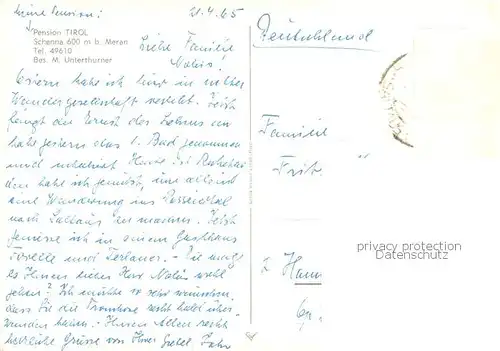 meine Pension:
21.4.65
Pension TIROL
Schenna 600 m b. Meran
Tel. 49610
Bes. M. Unterthurner
Deutschland
Liebe Familie
Ostern habe ich hier in netter
Wandergesellschaft verlebt. Jetzt
fängt der Ernst des Lebens an
habe gestern das 1. Bad genommen
und Heute ist
den habe ich genützt, um allein
eine Wanderung ins Passeiertal
nach Saltaus zu machen. Jetzt
genieße ich in einem Gasthaus
Forelle und Terlaner. - Wie mag
es Ihnen lieber Herr wohl
gehen? Ich möchte so sehr wünschen,
dass Sie die Trombose recht bald über-
wunden haben. Ihnen Allen recht
herzliche Grüsse von Ihrer
Familie
Fritz "
Hann
privacy protection
Datenschutz